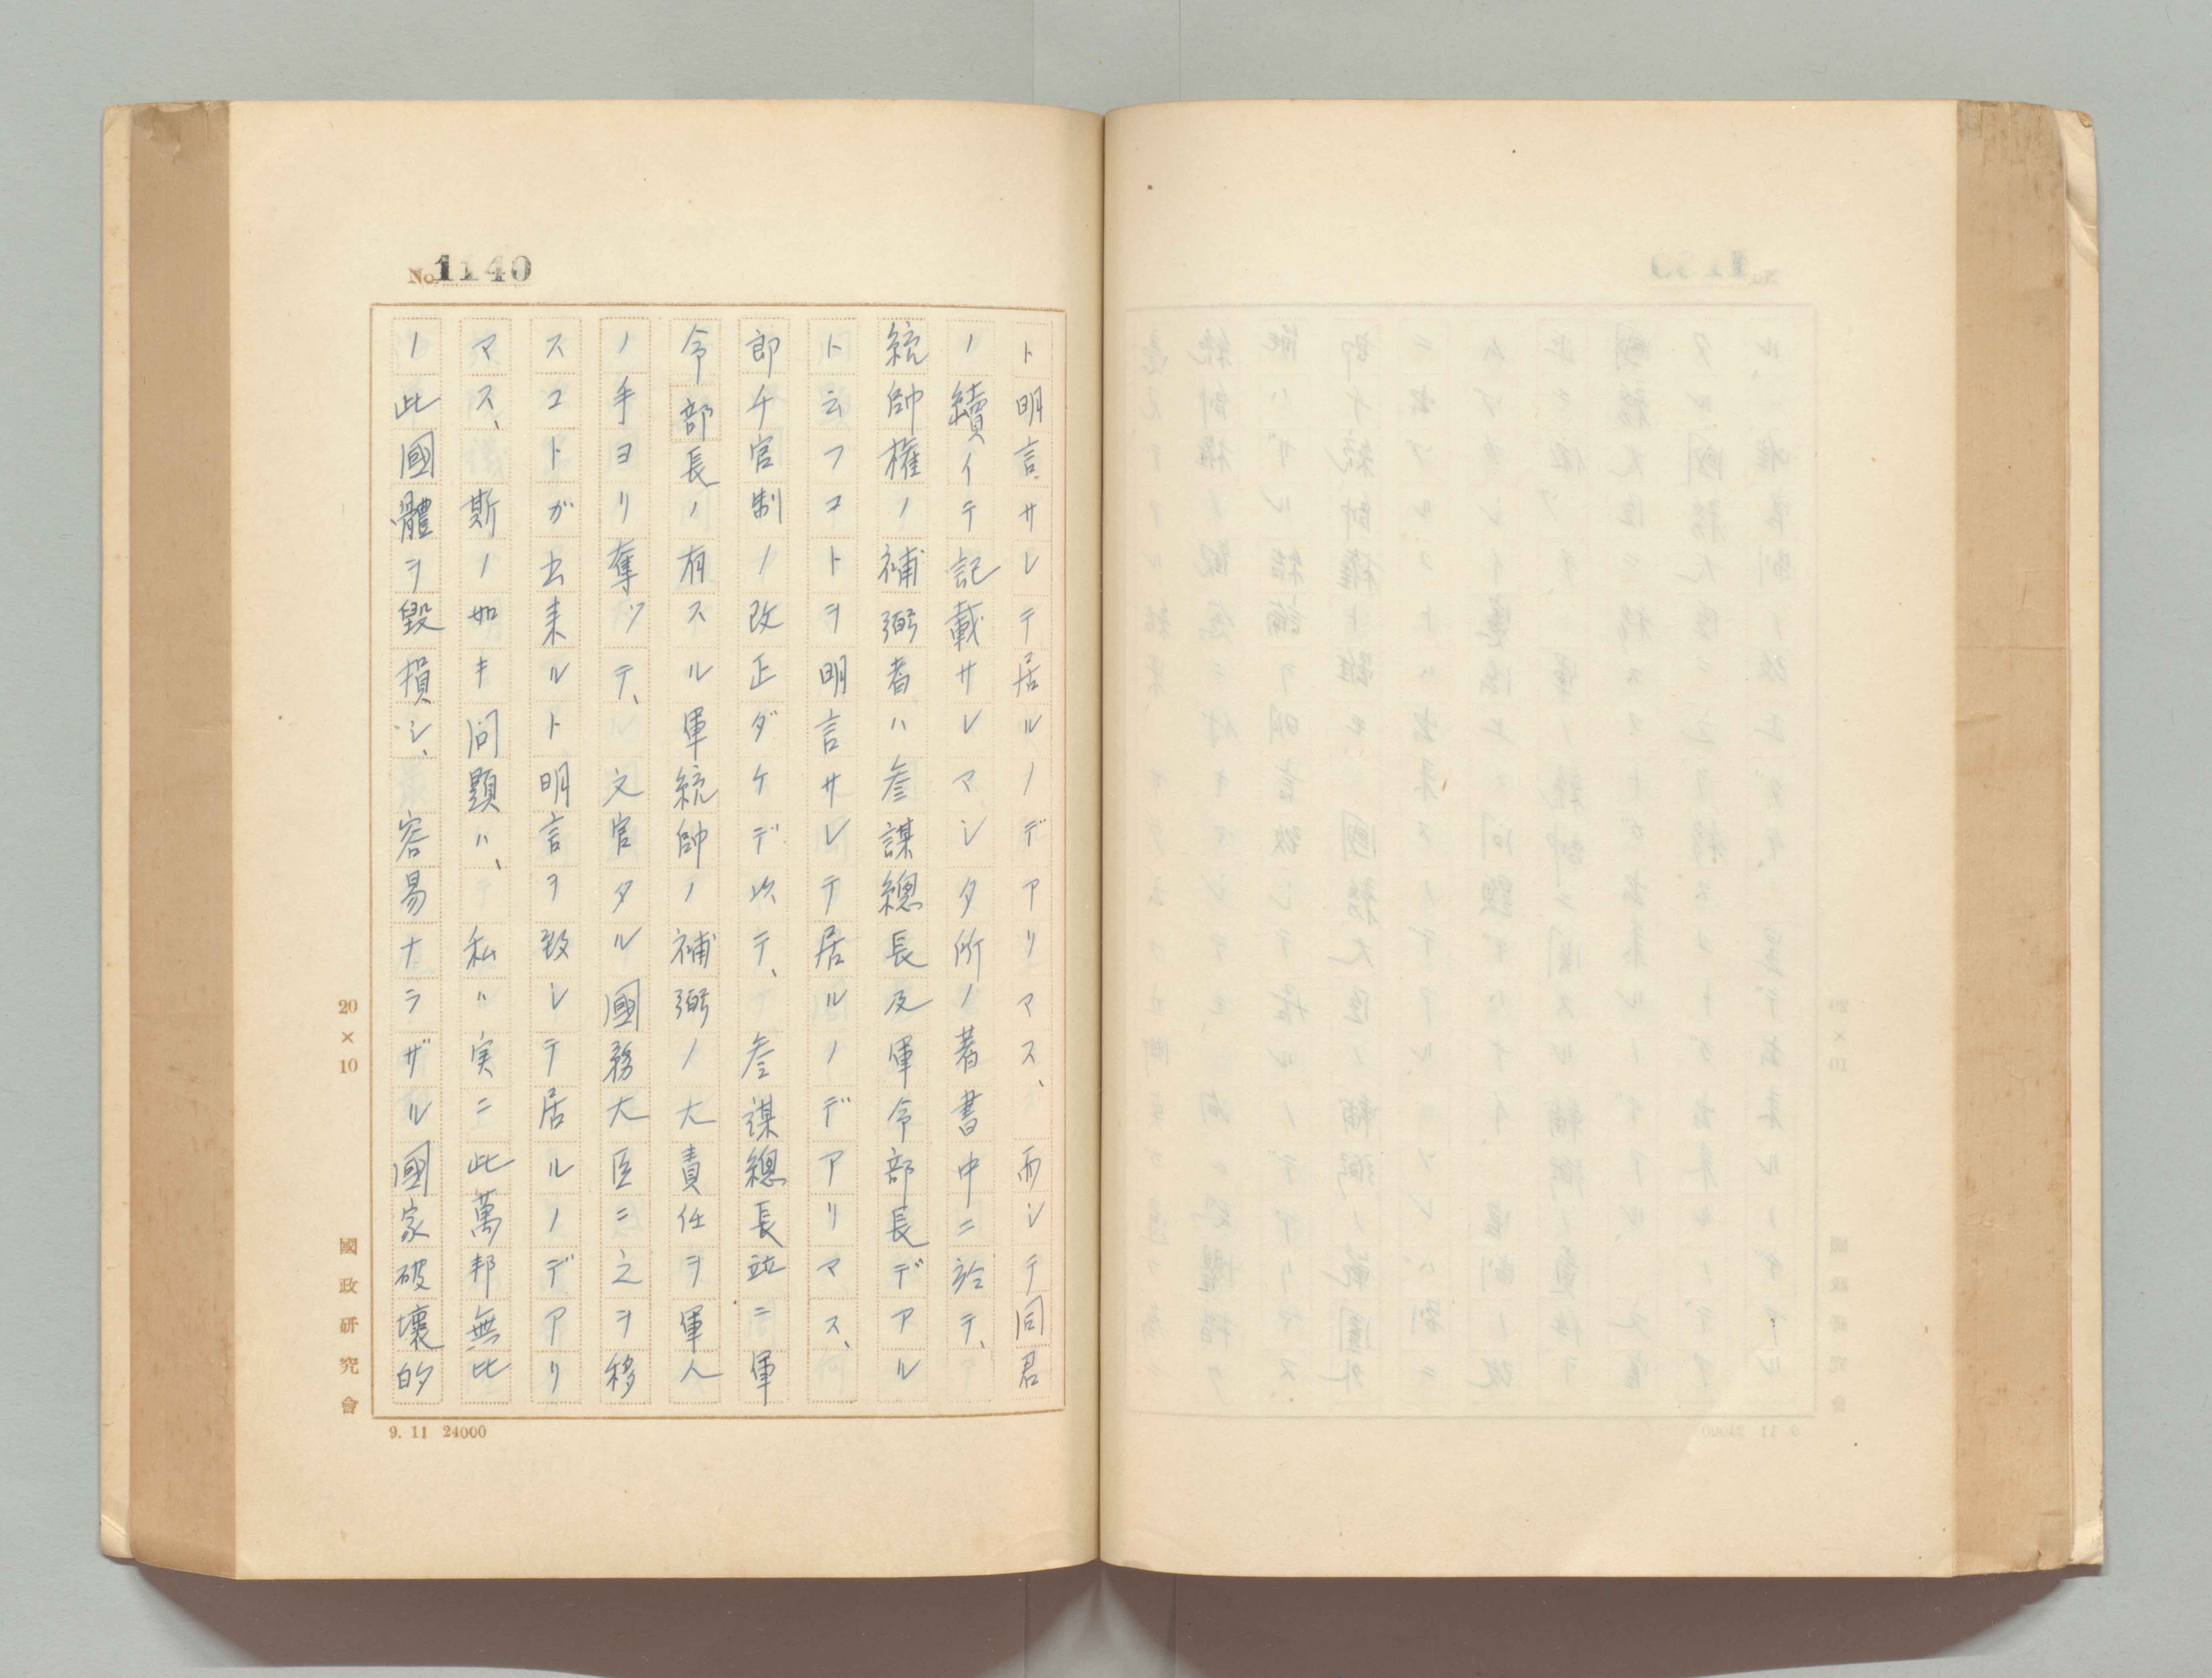 No. 1140
ト明言サレテ居ルノデアリマス、而シテ同君
ノ續イテ記載サレマシタ所ノ著書中ニ於テ、
統帥権ノ補弼者ハ参謀總長及軍令部長デアル
ト云フコトヲ明言サレテ居ルノデアリマス、
即チ官制ノ改正ダケデ以テ、参謀總長竝ニ軍
令部長ノ有スル軍統帥ノ補弼ノ大責任ヲ軍人
ノ手ヨリ奪ツテ、文官タル國務大臣ニ之ヲ移
スコトガ出来ルト明言ヲ致シテ居ルノデアリ
マス、斯ノ如キ問題ハ、私ハ実ニ此萬邦無比
ノ此國體ヲ毀損シ、容易ナラザル國家破壞的
20×10
國政研究會
9. 11 24000